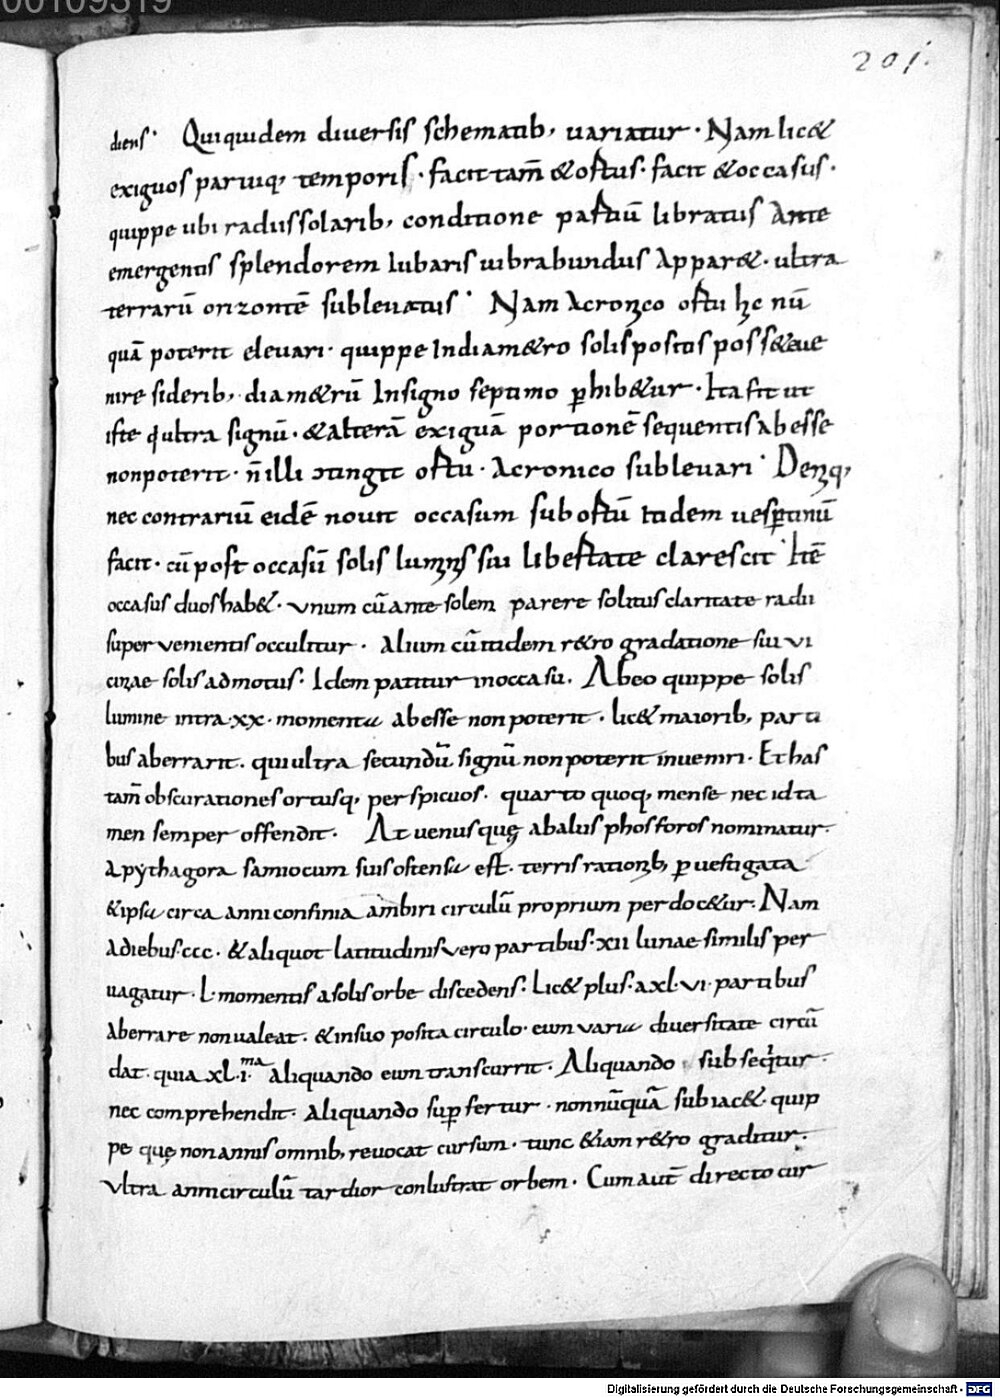 00109319
201.
diens· Qui quidem diuersis schematib; uariatur· Nam lic&
exiguos paruiq; temporis· facit tam̄ & ortus· facit & occasus·
quippe ubi radiis solarib; conditione partiū libratus Ante
emergentis splendorem Iubaris uibrabundus Appar&· ultra
terrarū orizontē subleuatus· Nam Acronico ortu hic nū
quā poterit eleuari· quippe Indiam&ro solis positos poss& eue
nire siderib; diam&rū In signo septimo ꝑhib&ur· Ita fit ut
iste q ultra signū· & alterā exiguā portionē sequentis abesse
non poterit· n̄ illi ɔtingit ortu· Acronico subleuari· Deniq;
nec contrariū eidē nouit occasum sub ortū Itidem uesꝑtinū
facit· cū post occasū solis luminis sui libertate clarescit· Itē
occasus duos hab&· vnum cū ante solem parere solitus claritate radii
super venientis occulitur· Alium cū itidem r&ro gradatione sui vi
cinae solis admotus· Idem patitur in occasu. Ab eo quippe solis
lumine intra·xx·momenta abesse non poterit· lic& maiorib; parti
bus aberrarit. qui ultra secundū signū non poterit inueniri· Et has
tam̄ obscurationes ortusq; perspicuos· quarto quoq; mense nec id ta
men semper offendit· At uenus quę abalus phosforos nominatur·
A pythagora samio cum suis ostensa est· terris rationib; ꝑuestigata
& ipsa circa anni confinia ambiri circulū proprium perdoc&ur· Nam
Adiebus·ccc· & aliquot latitudinis vero partibus·xii lunae similis per
uagatur· L·momentis a solis orbe discedens· Lic& plus·a xl·vi·partibus
Aberrare non ualeat· & in suo posita circulo· eum varia diuersitate circū
dat· quia xl·i·ma aliquando eum transcurrit· Aliquando subseq̇tur·
nec comprehendit· Aliquando suꝑfertur· non nūquā subiac&· quip
pe quę non annis omnib; reuocat cursum· tunc &iam r&ro graditur·
vltra anni circulū tardior conlustrat orbem· Cum aut̄ directo cur
Digitalisierung gefördert durch die Deutsche Forschungsgemeinschaft - DFG